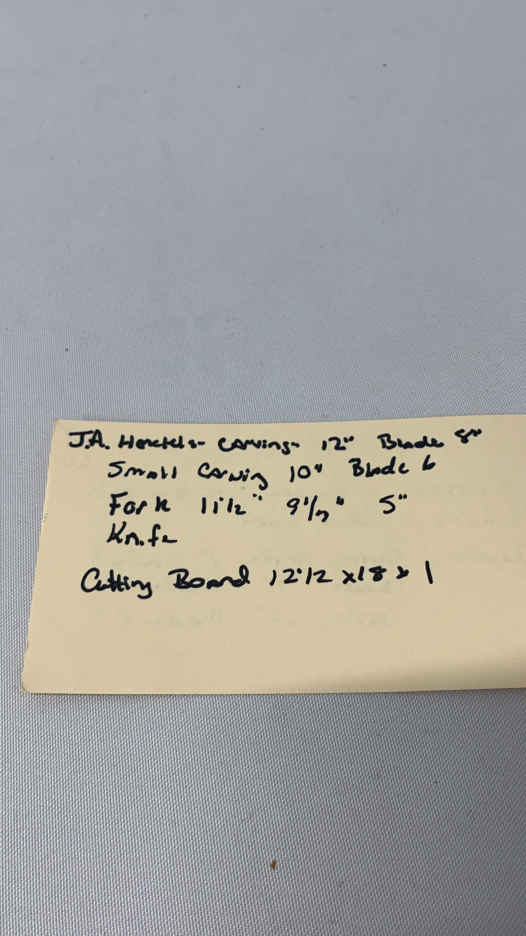 J.A. Henckels- Carving- 12" Blade 8"
Small Carving 10" Blade 6
Fork 11 1/2" 9 1/2" 5"
Knife
Cutting Board 12 1/2 x 18 x 1